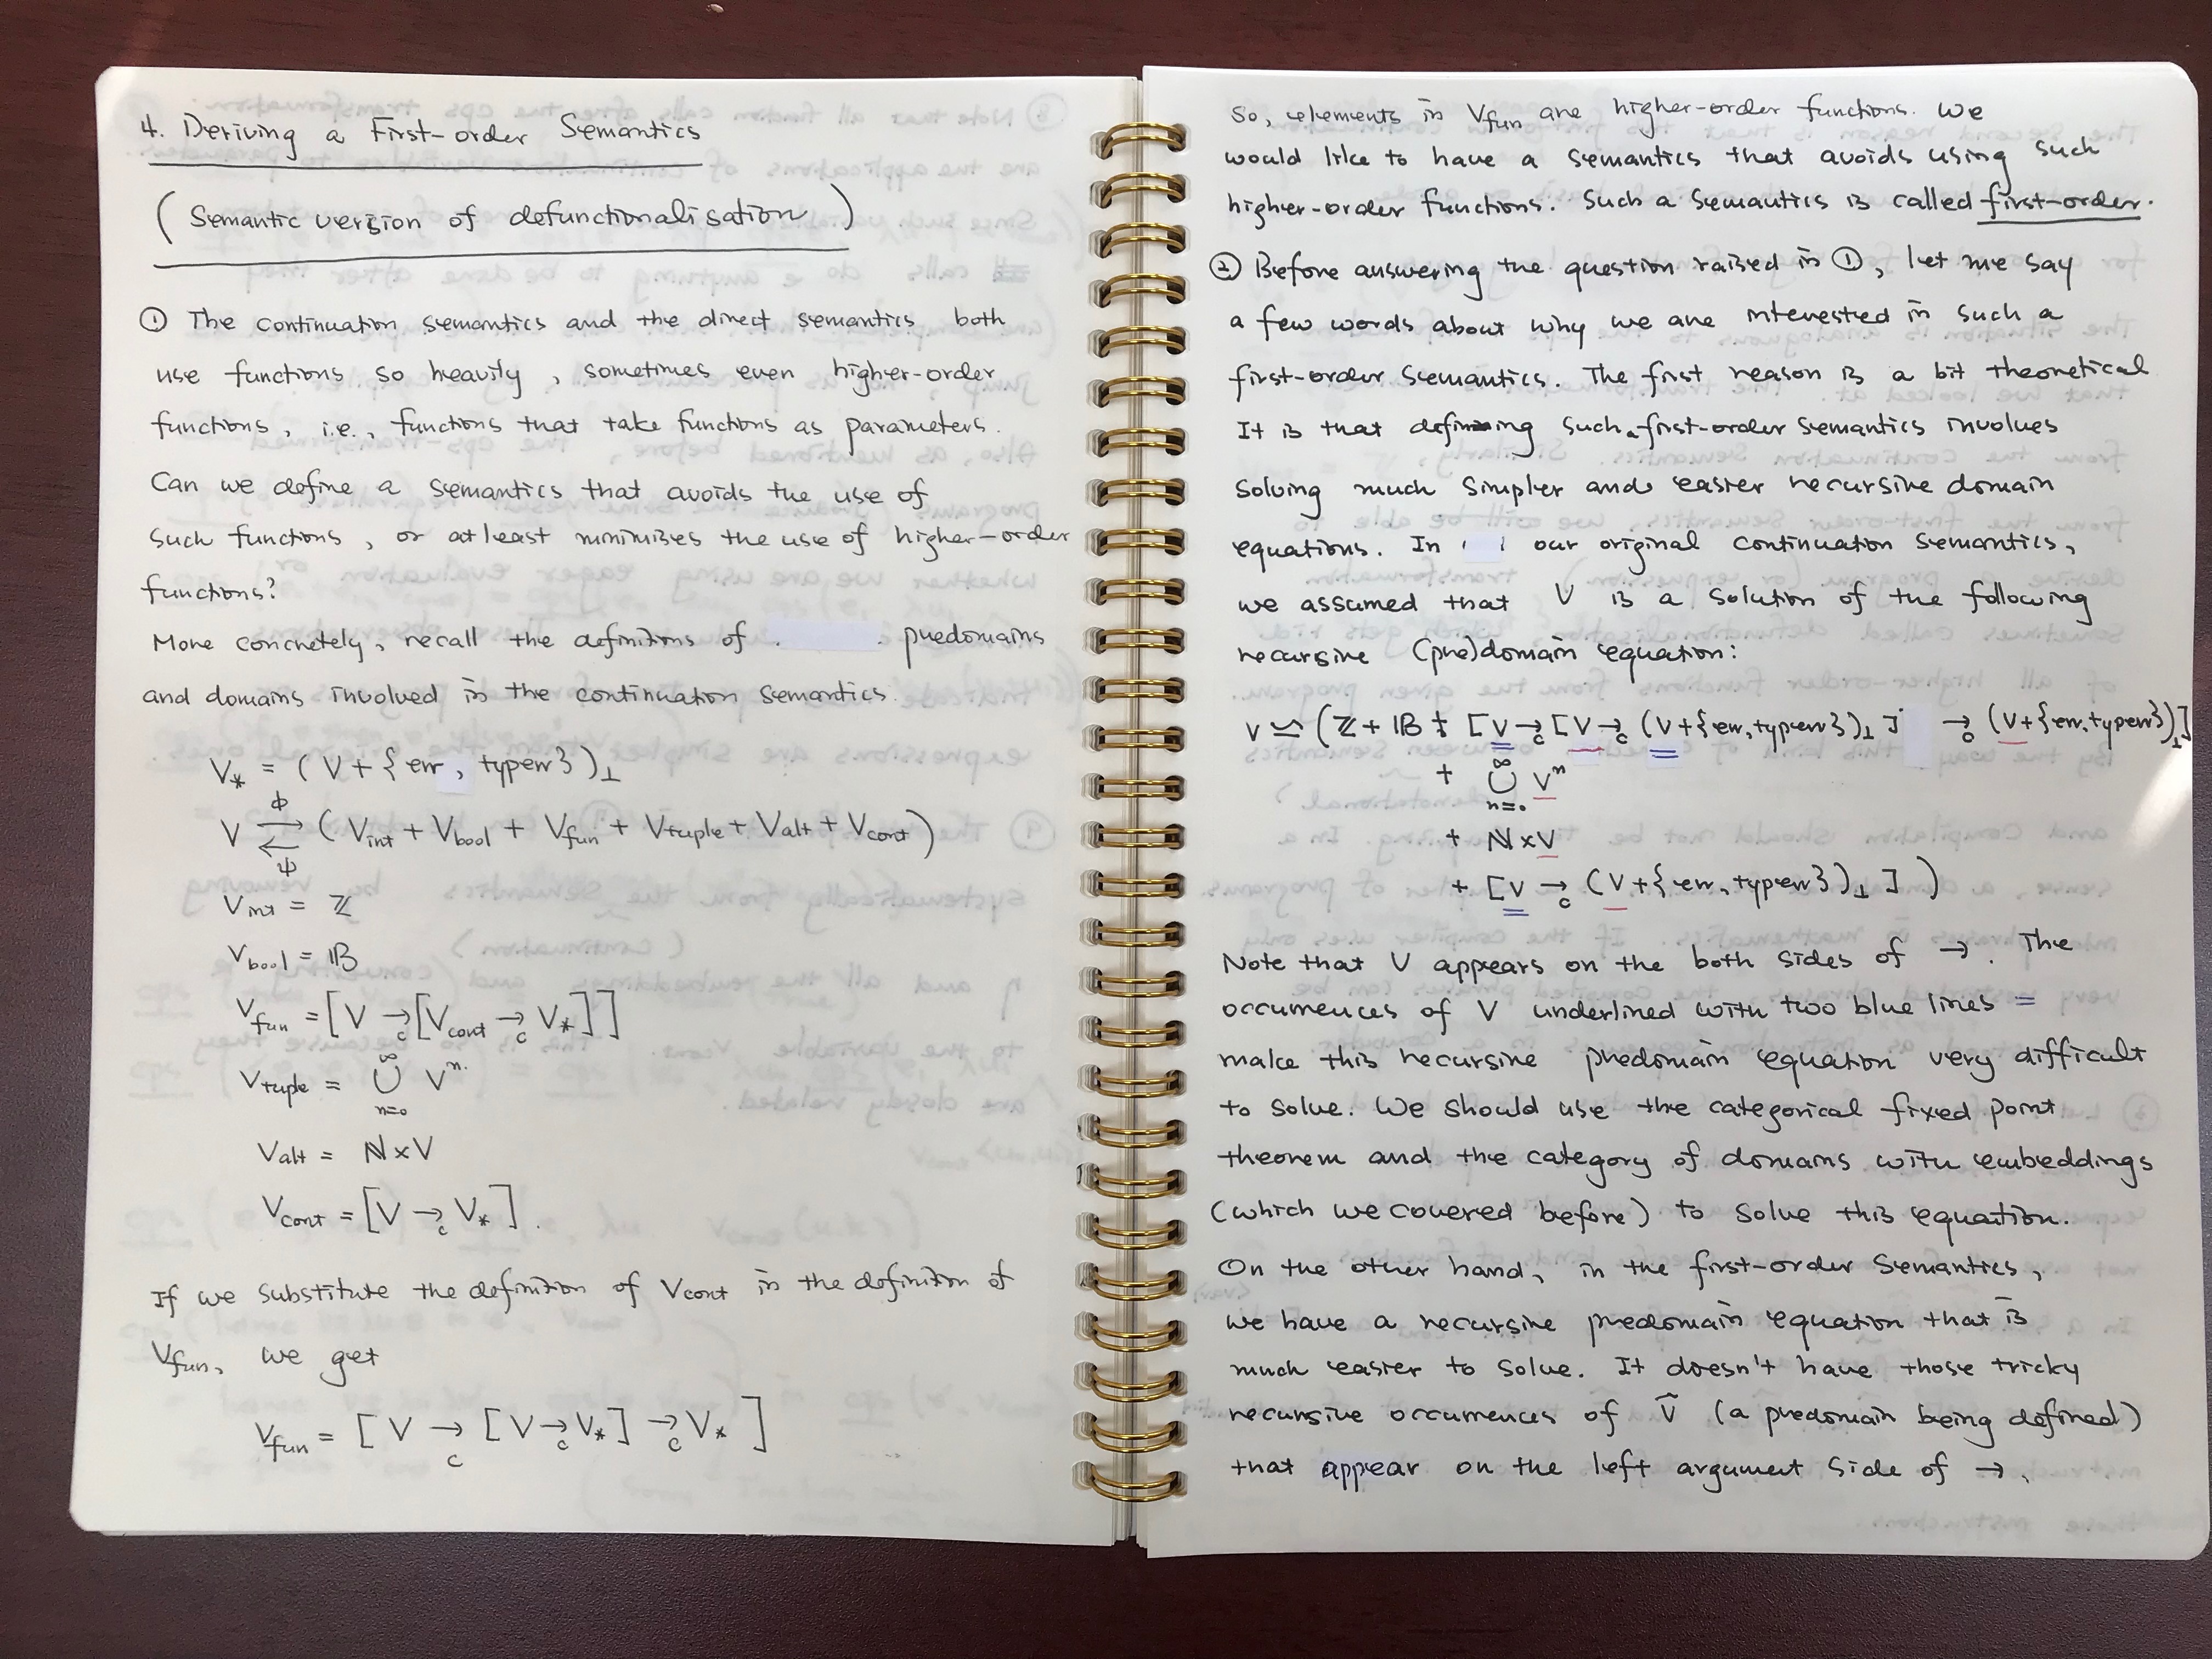 4. Deriving a First-order Semantics
(Semantic version of defunctionalisation)
① The continuation semantics and the direct semantics both
use functions so heavily, sometimes even higher-order
functions, i.e., functions that take functions as parameters.
Can we define a semantics that avoids the use of
such functions, or at least minimises the use of higher-order
functions?
More concretely, recall the definitions of predomains
and domains involved in the continuation semantics.
V_* = (V + {err, typerr})_⊥
V ⇄ (V_int + V_bool + V_fun + V_tuple + V_alt + V_cont)
ϕ
ψ
V_int = ℤ
V_bool = 𝔹
V_fun = [V →_c [V_cont →_c V_*]]
V_tuple = ∪_{n=0}^∞ V^n.
V_alt = ℕ × V
V_cont = [V →_c V_*].
If we substitute the definition of V_cont in the definition of
V_fun, we get
V_fun = [V →_c [V →_c V_*] →_c V_*]
So, elements in V_fun are higher-order functions. We
would like to have a semantics that avoids using such
higher-order functions. Such a semantics is called first-order.
② Before answering the question raised in ①, let me say
a few words about why we are interested in such a
first-order semantics. The first reason is a bit theoretical
It is that defining such a first-order semantics involves
solving much simpler and easier recursive domain
equations. In our original continuation semantics,
we assumed that V is a solution of the following
recursive (pre)domain equation:
V ≃ (ℤ + 𝔹 + [V →_c [V →_c (V+{err,typerr})_⊥] →_c (V+{err,typerr})_⊥]
+ ∪_{n=0}^∞ V^n
+ ℕ×V
+ [V →_c (V+{err,typerr})_⊥])
Note that V appears on the both sides of →. The
occurrences of V underlined with two blue lines =
make this recursive predomain equation very difficult
to solve. We should use the categorical fixed point
theorem and the category of domains with embeddings
(which we covered before) to solve this equation.
On the other hand, in the first-order semantics,
we have a recursive predomain equation that is
much easier to solve. It doesn't have those tricky
recursive occurrences of V̂ (a predomain being defined)
that appear on the left argument side of →.